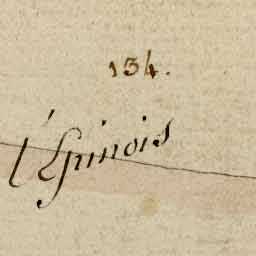 134.
l'Epinois